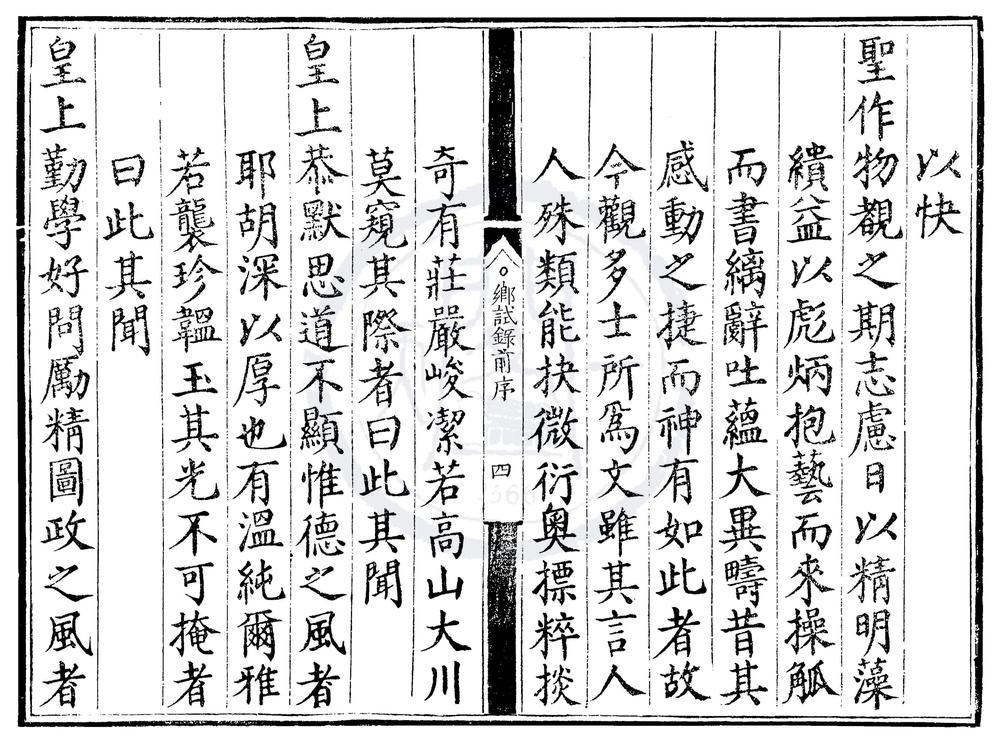 以快
聖作物覩之期志慮日以精明藻
繢益以彪炳抱藝而來操觚
而書縭辭吐蘊大異疇昔其
感動之捷而神有如此者故
今觀多士所爲文雖其言人
人殊類能抉微衍奥摽粹掞
鄉試錄前序
四
奇有莊嚴峻潔若高山大川
莫窺其際者曰此其聞
皇上恭默思道不顯惟德之風者
耶胡深以厚也有溫純爾雅
若襲珍韞玉其光不可掩者
曰此其聞
皇上勤學好問勵精圖政之風者